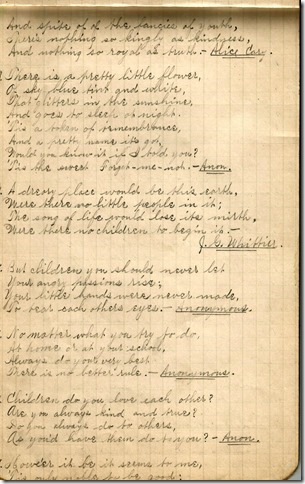 And spite of all the fancies of youth,
There's nothing so kingly as kindness,
And nothing so royal as truth. - Alice Cary.
There is a pretty little flower,
Of sky blue tint and white,
That glitters in the sunshine,
And goes to sleep at night.
'Tis a token of remembrance,
And a pretty name it's got,
Would you know it if I told you?
'Tis the sweet Forget-me-not. - Anon.
A dreary place would be this earth,
Were there no little people in it;
The song of life would lose its mirth,
Were there no children to begin it. -
J. G. Whittier.
But children you should never let
Your angry passions rise;
Your little hands were never made,
To tear each others eyes. - Anonymous.
No matter what you try to do,
At home or at your school,
Always do your very best
There is no better rule. - Anonymous.
Children do you love each other?
Are you always kind and true?
Do you always do to others,
As you'd have them do to you? - Anon.
Howe'er it be it seems to me,
'Tis only noble to be good;